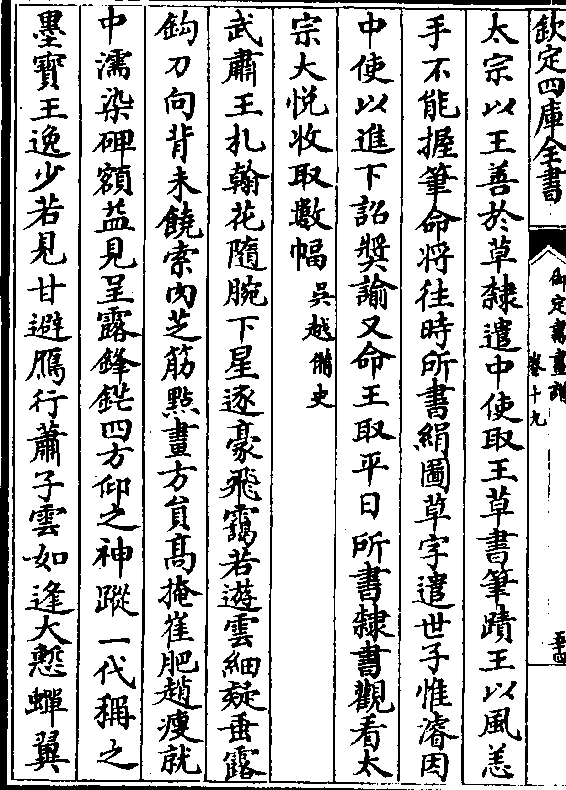 欽定四庫全書
御定書畫譜
卷十九
太宗以王善於草隸遣中使取王草書筆蹟王以風恙
手不能握筆命將往時所書絹圖草字遣世子惟濬因
中使以進下詔奬諭又命王取平日所書隸書觀看太
宗大悅收取數幅吳越備史
武肅王札翰花隨腕下星逐豪飛靄若遊雲細疑垂露
鈎刀向背未饒索肉芝筋點畫方員高掩崔肥趙瘦就
中濡染碑額益見呈露鋒鋩四方仰之神蹤一代稱之
墨寶王逸少若見甘避鴈行蕭子雲如逢大慙蟬翼